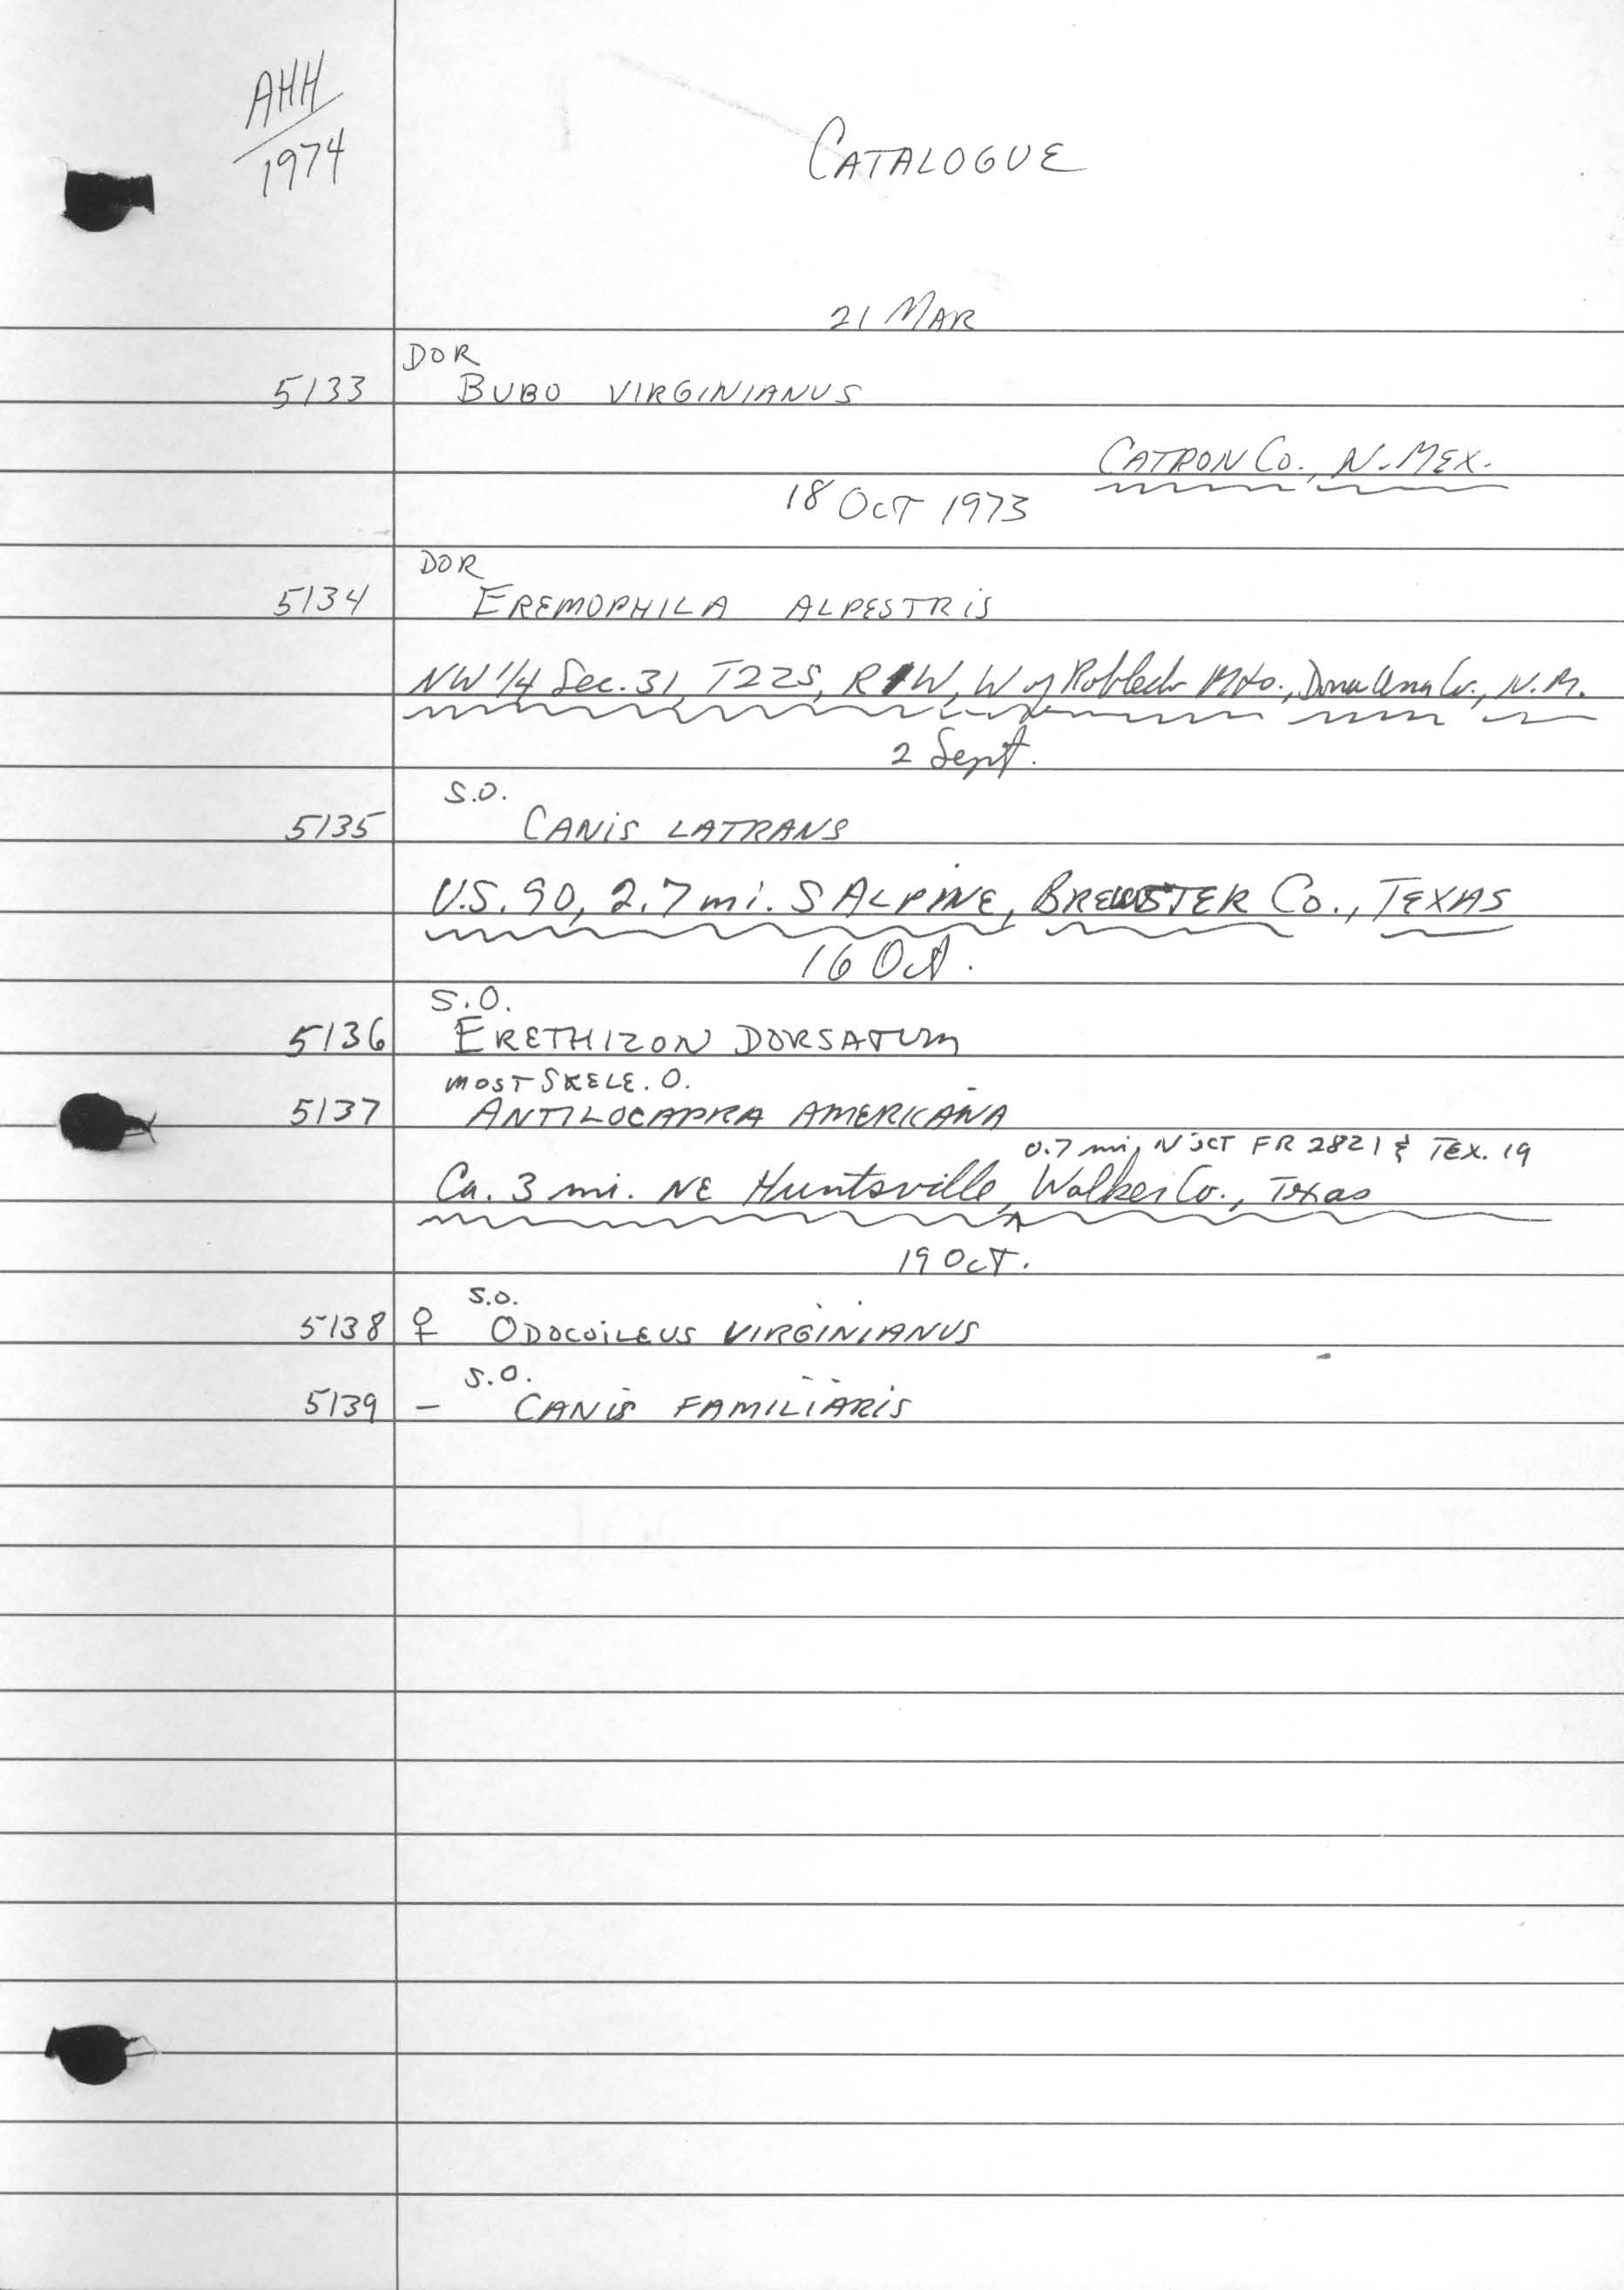 AHH
1974
CATALOGUE
21 MAR
DOR
5133 BUBO VIRGINIANUS
CATRON CO., N. MEX.
18 OCT 1973
DOR
5134 EREMOPHILA ALPESTRIS
NW 1/4 Sec. 31, T22S, R1W, W of Robledo Mts., Dona Ana Co., N.M.
2 Sept.
S.O.
5135 CANIS LATRANS
U.S. 90, 2.7 mi. S ALPINE, BREWSTER CO., TEXAS
16 Oct.
S.O.
5136 ERETHIZON DORSATUM
MOST SKELE. O.
5137 ANTILOCAPRA AMERICANA
0.7 mi, N JCT FR 2821 & TEX. 19
Ca. 3 mi. NE Huntsville, Walker Co., Texas
19 OCT.
S.O.
5138 ♀ ODOCOILEUS VIRGINIANUS
S.O.
5139 – CANIS FAMILIARIS